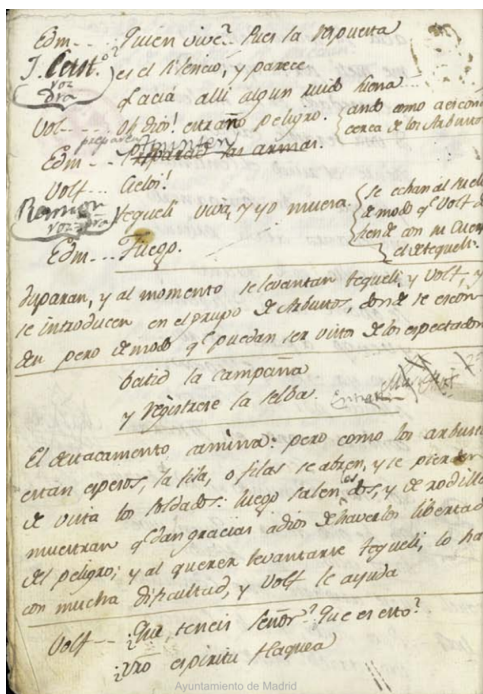 Edm... ¿Quién vive? Pues la respuesta
J. Cast.º es el silencio, y parece
voz dra
hacia alli algun ruido suena
Vol... Oh dios! extraño peligro. ando como acia
cerca de los Arbustos
preparen
Edm... apunten
Preparad las armas.
Volf... Cielos!
Ramon tequeli viva, y yo muera. se echan al suelo
voz dra de modo q.e Volf de
fiende con su Cuerpo
el de tequeli.
Edm... Fuego.
disparan, y al momento se levantan tequeli, y Volf, y
se introducen en el grupo de Arbustos, donde se escon
den pero de modo q.e puedan ser vistos de los espectador
batid la campaña
y registrese la selba. Entran
El destacamento camina: pero como los arbust
estan espesos, la fila, o filas se abren, y se pierden
de vista los soldados: luego salen los dos, y de rodillas
muestran q.e dan gracias a dios de haverlos libertad
del peligro; y al querer levantarse tequeli, lo ha
con mucha dificultad, y Volf le ayuda
Volf — ¿Que teneis señor? ¿Que es esto?
¿Vro espiritu flaquea
Ayuntamiento de Madrid